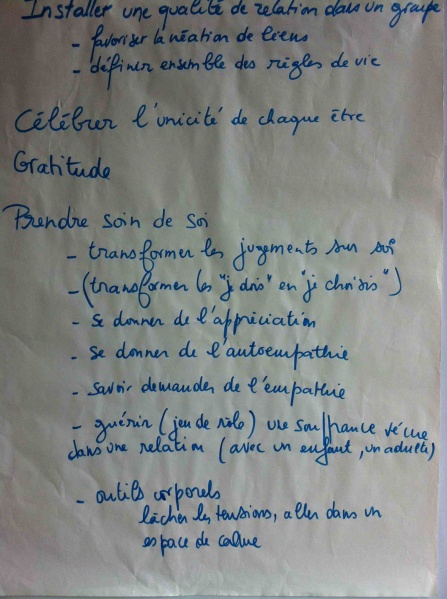 Installer une qualité de relation dans un groupe
- favoriser la création de liens
- définir ensemble des règles de vie
Célébrer l'unicité de chaque être
Gratitude
Prendre soin de soi
- transformer les jugements sur soi
- (transformer les "je dois" en "je choisis")
- se donner de l'appréciation
- se donner de l'autoempathie
- savoir demander de l'empathie
- guérir (jeu de rôle) une souffrance vécue
dans une relation (avec un enfant, un adulte)
- outils corporels
lâcher les tensions, aller dans un
espace de calme